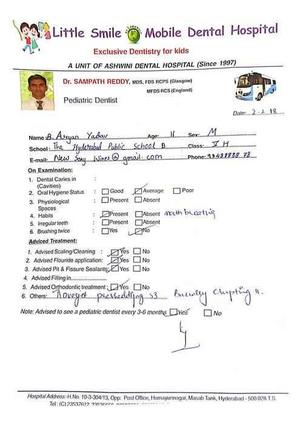 Little Smile Mobile Dental Hospital
Exclusive Dentistry for kids
A UNIT OF ASHWINI DENTAL HOSPITAL (Since 1997)
Dr. SAMPATH REDDY, MDS, FDS RCPS (Glasgow)
MFDS RCS (England)
Pediatric Dentist
Date: 2-2-18
Name B. Aryan Yadav Age: 11 Sex: M
School: The Hyderabad Public School B Class: V H
E-mail: @gmail.com Phone:
On Examination:
1. Dental Caries in (Cavities) :
2. Oral Hygiene Status : Good Average Poor
3. Physiological Spaces : Present Absent
4. Habits : Present Absent mouth breathing
5. Irregular teeth : Present Absent
6. Brushing twice : Yes No
Advised Treatment:
1. Advised Scaling/Cleaning : Yes No
2. Advised Flouride application: Yes No
3. Advised Pit & Fissure Sealants: Yes No
4. Advised Filling in :
5. Advised Orthodontic treatment : Yes No
6. Others:
Note: Advised to see a pediatric dentist every 3-6 months Yes No
Hospital Address: H.No. 10-3-304/13, Opp: Post Office, Humayunnagar, Masab Tank, Hyderabad - 500 028 T.S.